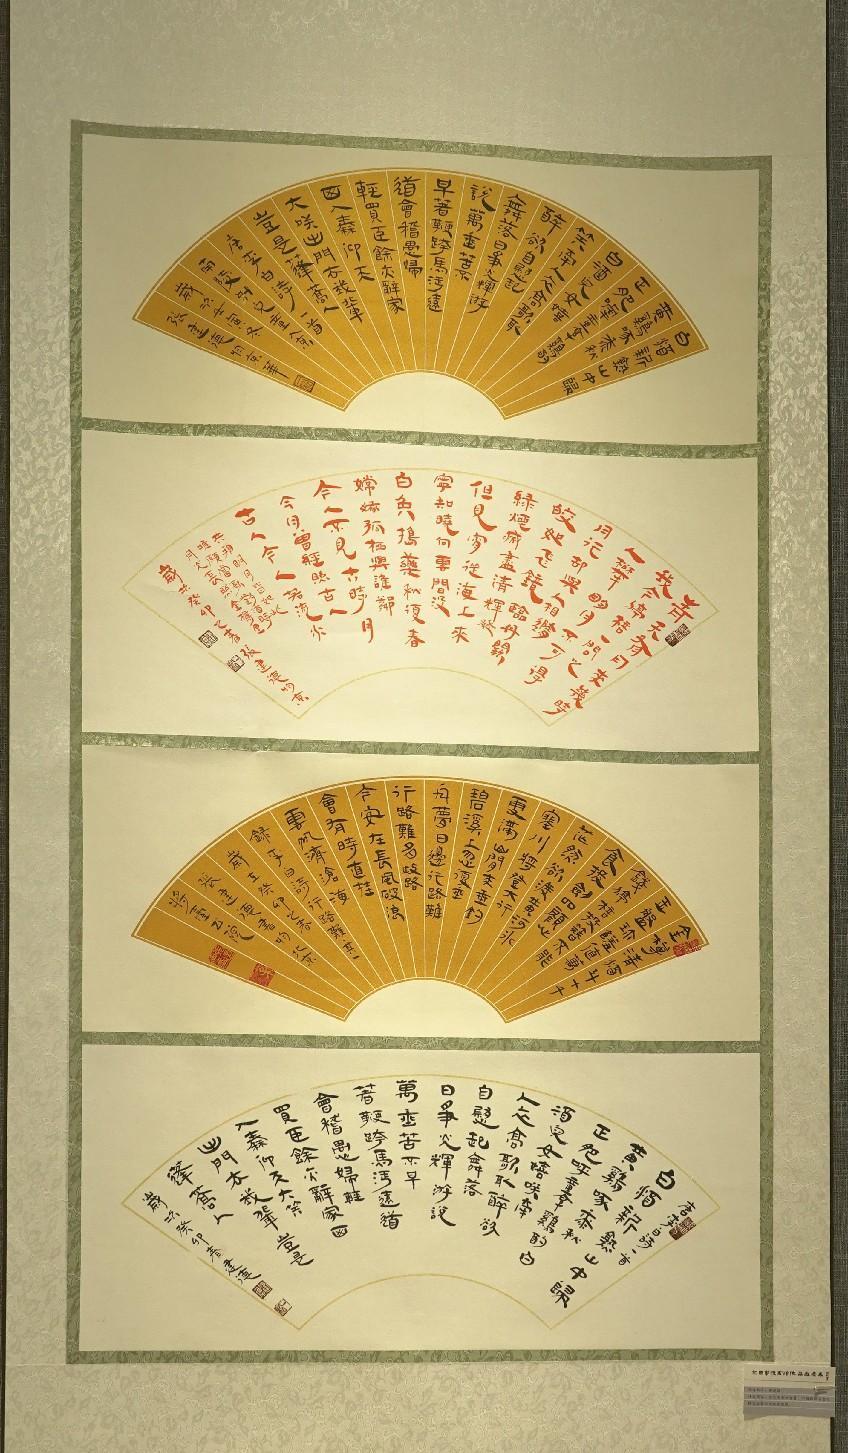 白酒新熟山中歸
黃雞啄黍秋
正肥呼童烹雞酌
白酒兒女嬉
笑牽人衣高歌取
醉欲自慰起
舞落日爭光輝游
說萬乘苦不
早著鞭跨馬涉遠
道會稽愚婦
輕買臣餘亦辭家
西入秦仰天
大笑出門去我輩
豈是蓬蒿人
唐李白詩一首
南陵別兒童入京
歲次壬寅冬
張建德於京華
青天有月來幾時
我今停杯一問之
人攀明月不可得
月行却與人相隨
皎如飛鏡臨丹闕
綠煙滅盡清輝發
但見宵從海上來
寧知曉向雲間沒
白兔搗藥秋復春
嫦娥孤栖與誰鄰
今人不見古時月
今月曾經照古人
古人今人若流水
共看明月皆如此
唯願當歌對酒
時月光長照金樽里
歲次癸卯之春張建德於京
金樽清酒斗十千
玉盤珍饈值萬
錢停杯投箸不能
食拔劍四顧心
茫然欲渡黃河冰
塞川將登太行
雪滿山閒來垂釣
碧溪上忽復乘
舟夢日邊行路難
行路難多歧路
今安在長風破浪
會有時直挂
雲帆濟滄海
錄李白詩行路難其一
歲在癸卯之春
張建德書於北京
李白詩一首
白酒新熟山中歸
黃雞啄黍秋
正肥呼童烹雞酌白
酒兒女嬉笑牽
人衣高歌取醉欲
自慰起舞落
日爭光輝游說
萬乘苦不早
著鞭跨馬涉遠道
會稽愚婦輕
買臣餘亦辭家西
入秦仰天大笑
出門去我輩豈是
蓬蒿人
歲次癸卯春建德